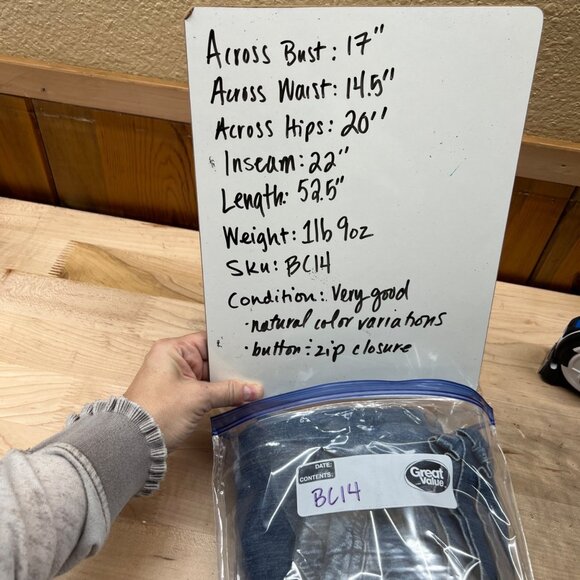 Across Bust: 17"
Across Waist: 14.5"
Across Hips: 20"
Inseam: 22"
Length: 52.5"
Weight: 1lb 9oz
Sku: BC14
Condition: Very good
· natural color variations
· button : zip closure
DATE:
CONTENTS:
BC14
Great
Value